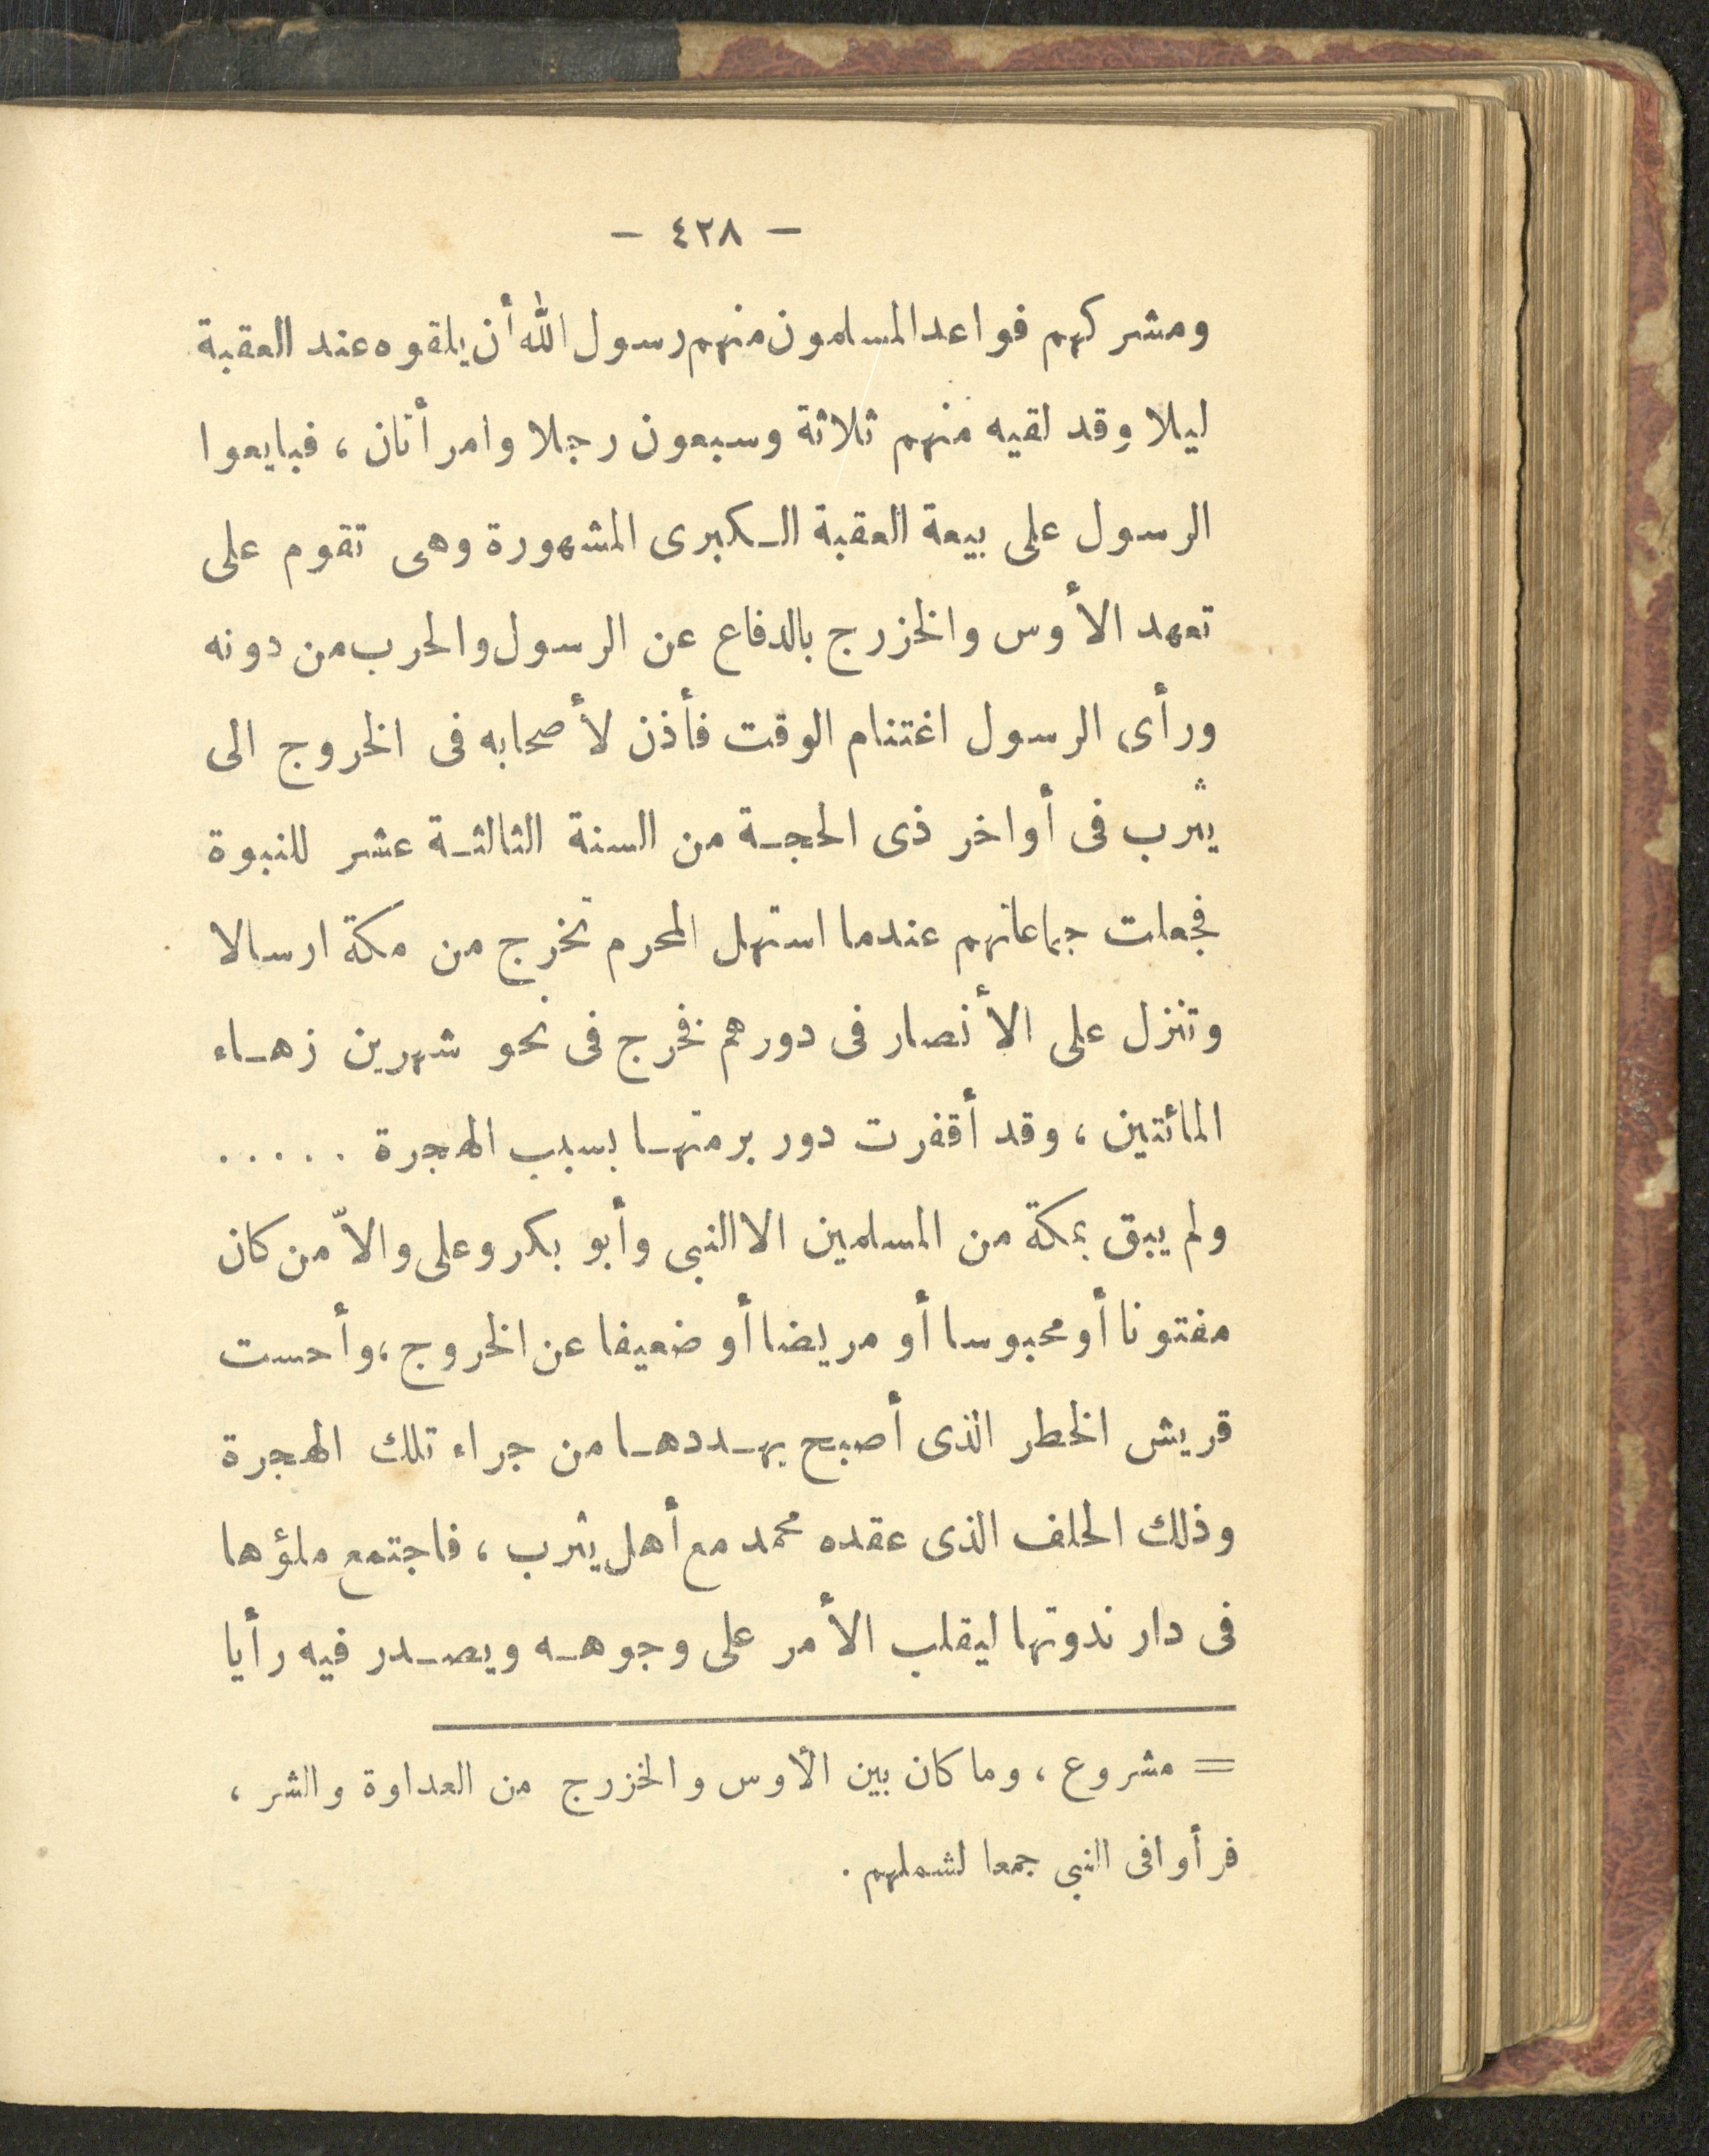 — ٤٢٨ —
ومشركهم فواعد المسلمون منهم رسول الله أن يلقوه عند العقبة
ليلا وقد لقيه منهم ثلاثة وسبعون رجلا وامرأتان ، فبايعوا
الرسول على بيعة العقبة الكبرى المشهورة وهى تقوم على
تعهد الأوس والخزرج بالدفاع عن الرسول والحرب من دونه
ورأى الرسول اغتنام الوقت فأذن لأصحابه فى الخروج الى
يثرب فى أواخر ذى الحجة من السنة الثالثة عشر للنبوة
فجعلت جماعاتهم عندما استهل المحرم تخرج من مكة ارسالا
وتنزل على الأنصار فى دورهم فخرج فى نحو شهرين زهاء
المائتين ، وقد أقفرت دور برمتها بسبب الهجرة . . . . .
ولم يبق بمكة من المسلمين الا النبى وأبو بكر وعلى والاّ من كان
مفتونا أو محبوسا أو مريضا أو ضعيفا عن الخروج ، وأحست
قريش الخطر الذى أصبح يهددها من جراء تلك الهجرة
وذلك الحلف الذى عقده محمد مع أهل يثرب ، فاجتمع ملؤها
فى دار ندوتها ليقلب الأمر على وجوهه ويصدر فيه رأيا
= مشروع ، وما كان بين الأوس والخزرج من العداوة والشر ،
فرأوا فى النبى جمعا لشملهم .